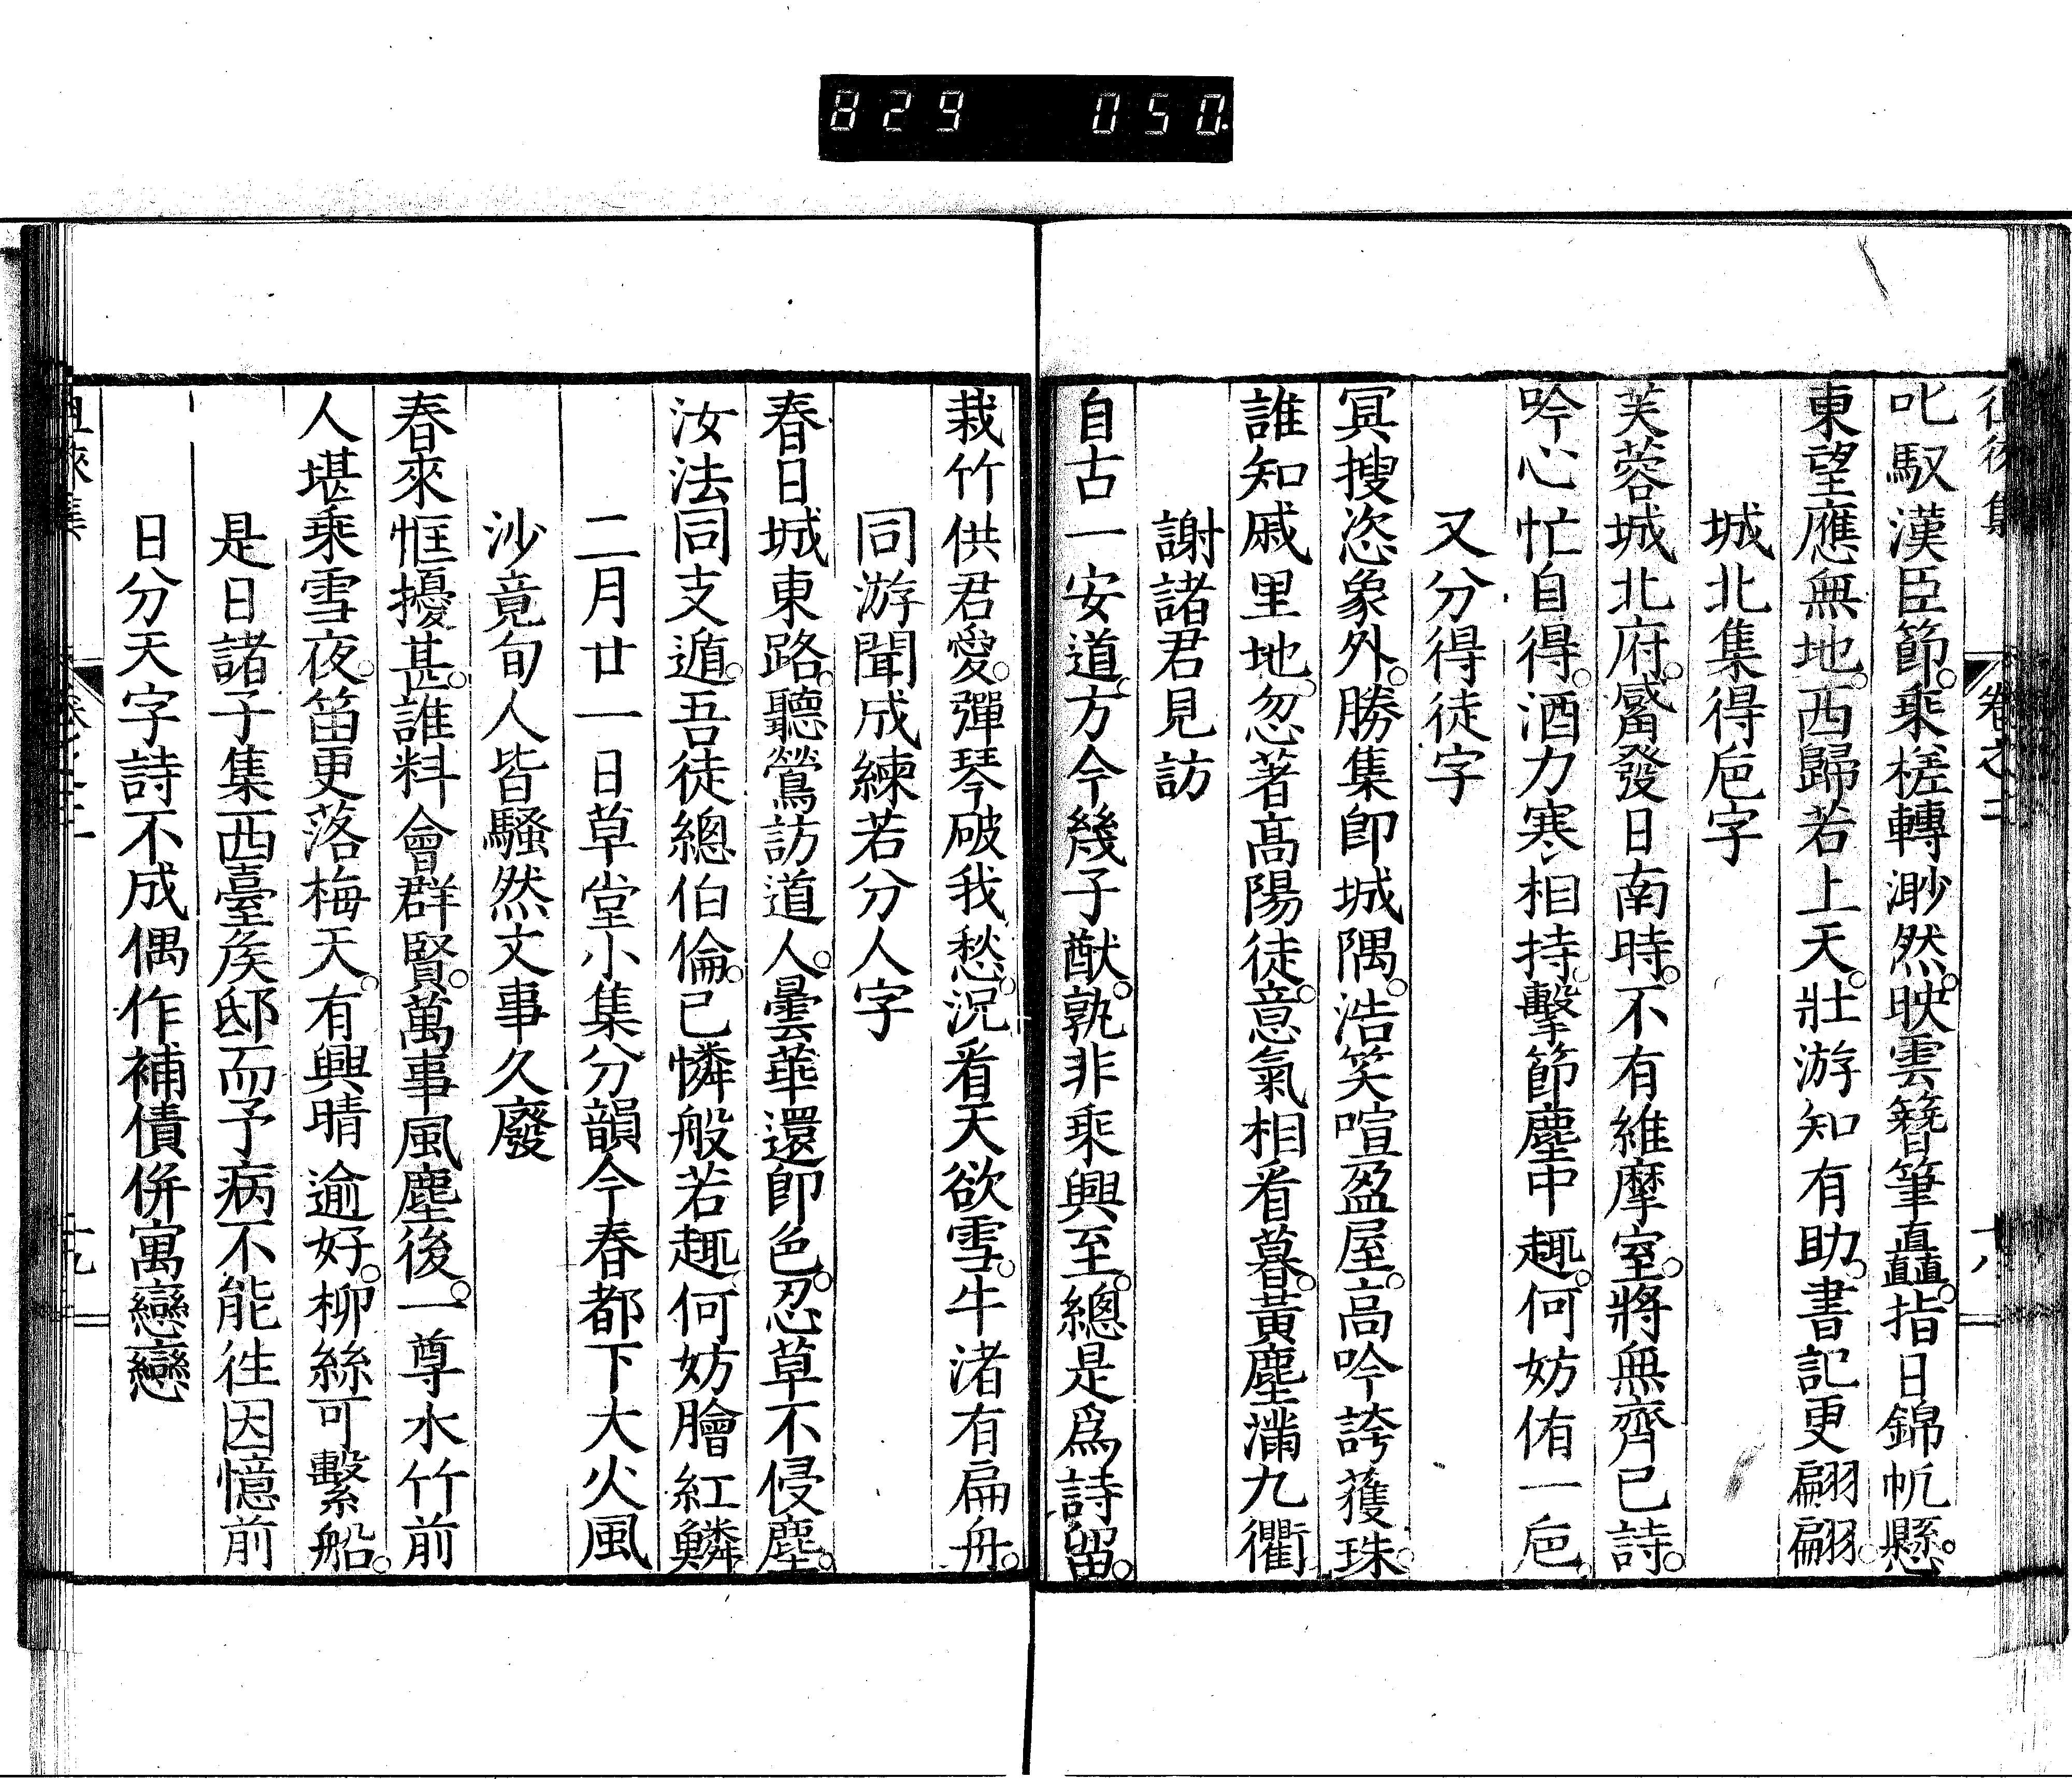 829 050
叱馭漢臣節。乘槎轉渺然。映雲簪筆矗。指日錦帆懸。
東望應無地。西歸若上天。壯游知有助。書記更翩翩。
城北集得巵字
芙蓉城北府。觱發日南時。不有維摩室。將無齊已詩。
吟心忙自得。酒力寒相持。擊節塵中趣。何妨侑一巵。
又分得徒字
冥搜恣象外。勝集即城隅。浩笑喧盈屋。高吟誇獲珠。
誰知戚里地。忽著高陽徒。意氣相看暮。黃塵滿九衢。
謝諸君見訪
自古一安道。方今幾子猷。孰非乘興至。總是爲詩留。
栽竹供君愛。彈琴破我愁。況看天欲雪。牛渚有扁舟。
同游聞成練若分人字
春日城東路。聽鶯訪道人。曇華還即色。忍草不侵塵。
汝法同支遁。吾徒總伯倫。已憐般若趣。何妨膾紅鱗
二月廿一日草堂小集分韻今春都下大火風
沙竟旬人皆騷然文事久廢
春來恇擾甚。誰料會群賢。萬事風塵後。一尊水竹前
人堪乘雪夜。笛更落梅天。有興晴逾好。柳絲可繫船。
是日諸子集西臺矦邸而予病不能徃因憶前
日分天字詩不成偶作補債併寓戀戀